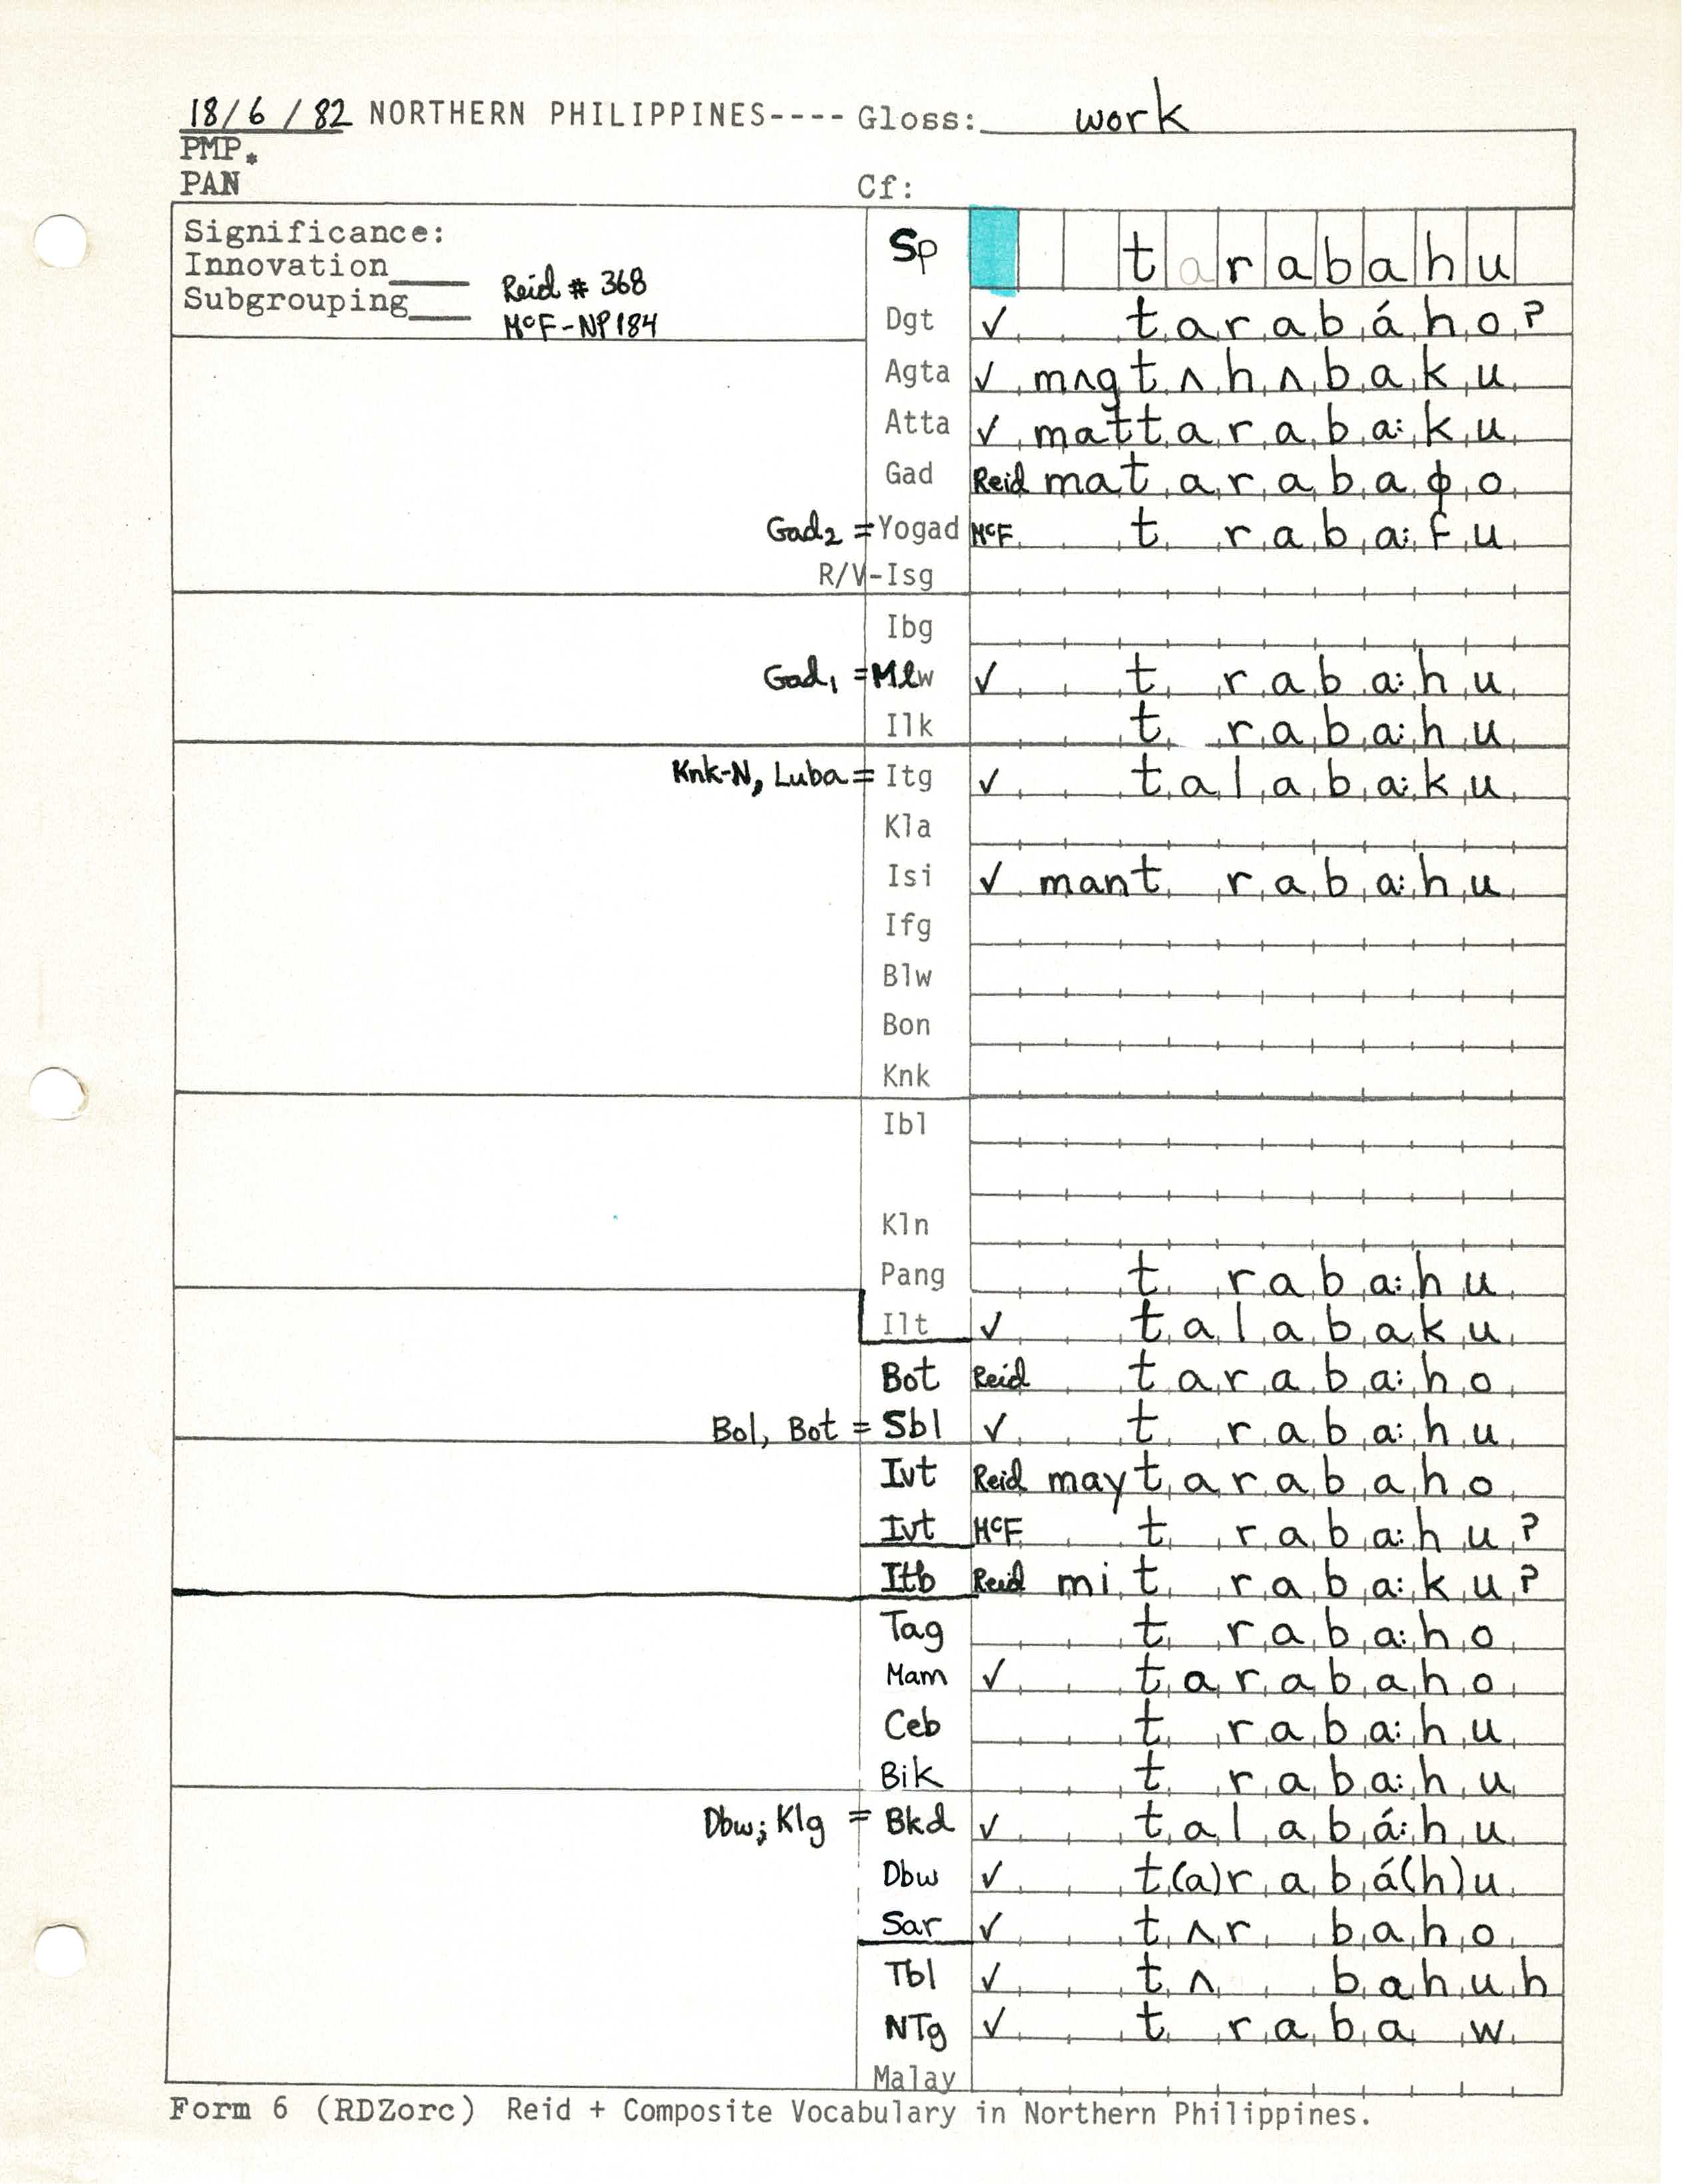 18/6/82 NORTHERN PHILIPPINES---- Gloss: work
PMP.
PAN Cf:
Significance:
Innovation____
Subgrouping____
Reid # 368
McF-NP184
Sp tarabahu
Dgt ✓ tarabáho?
Agta ✓ mʌgtʌhʌbaku
Atta ✓ mattaraba:ku
Gad Reid matarabaɸo
Gad2 = Yogad McF traba:fu
R/V-Isg
Ibg
Gad1 = Mlw ✓ traba:hu
Ilk traba:hu
Knk-N, Luba = Itg ✓ talaba:ku
Kla
Isi ✓ mantraba:hu
Ifg
Blw
Bon
Knk
Ibl
Kln
Pang traba:hu
Ilt ✓ talabaku
Bot Reid taraba:ho
Bol, Bot = Sbl ✓ traba:hu
Ivt Reid maytarabaho
Ivt McF traba:hu?
Itb Reid mitraba:ku?
Tag traba:ho
Mam ✓ tarabaho
Ceb traba:hu
Bik traba:hu
Dbw; Klg = Bkd ✓ talabá:hu
Dbw ✓ t(a)rabá(h)u
Sar ✓ tʌrbaho
Tbl ✓ tʌbahuh
NTg ✓ trabaw
Malay
Form 6 (RDZorc) Reid + Composite Vocabulary in Northern Philippines.